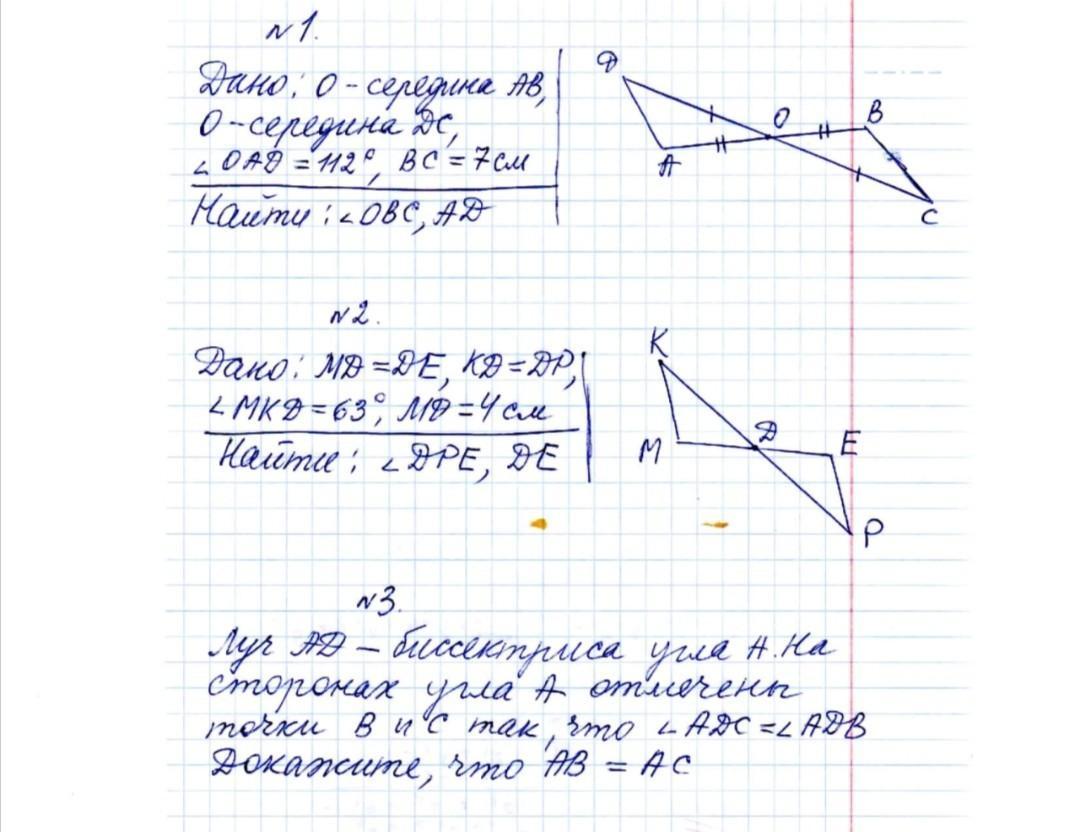 №1.
Дано: О - середина АВ,
О - середина DC,
∠OAD = 112°, BC = 7см
Найти: ∠OBC, AD
D
O
B
A
C
№2.
Дано: MD = DE, KD = DP,
∠MKD = 63°, MD = 4 см
Найти: ∠DPE, DE
K
D
E
M
P
№3.
Луч AD – биссектриса угла A. На
сторонах угла A отмечены
точки B и C так, что ∠ADC = ∠ADB
Докажите, что AB = AC